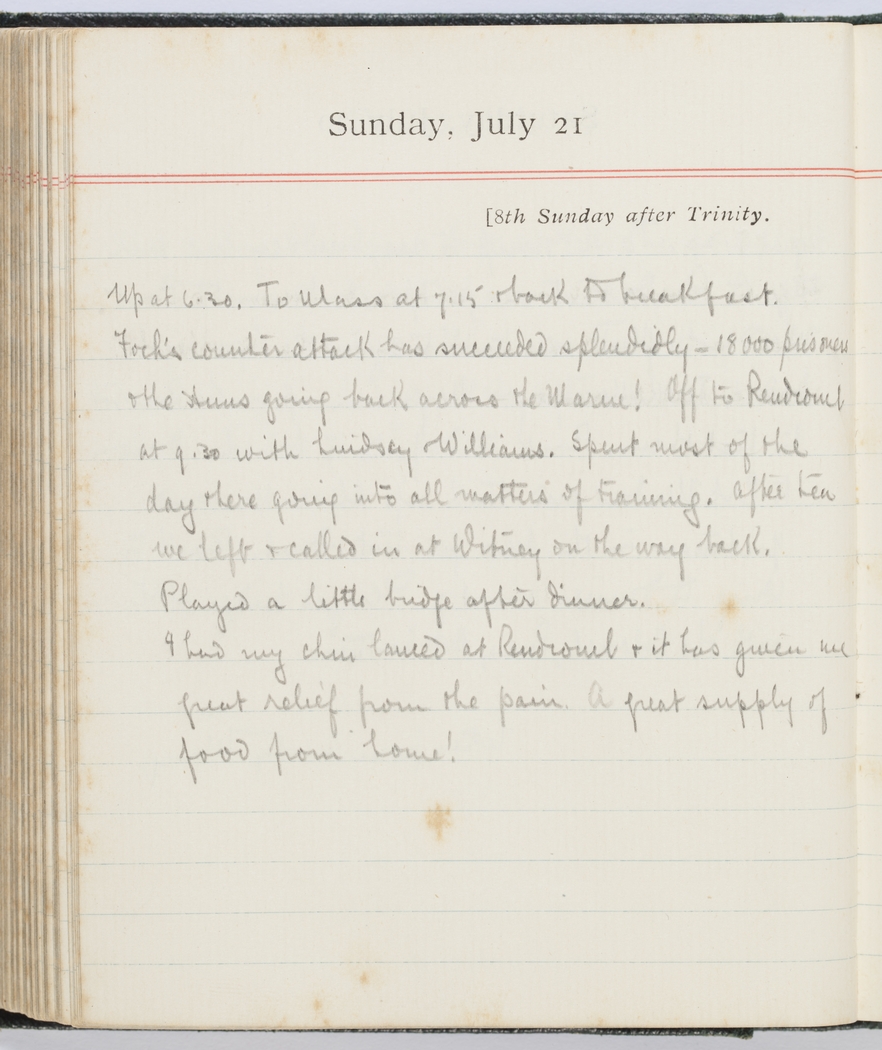 Sunday, July 21
[8th Sunday after Trinity.
Up at 6.30. To Mass at 7.15 & back to breakfast.
Foch's counter attack has succeeded splendidly – 18000 prisoners
& the Huns going back across the Marne! Off to Rendcomb
at 9.30 with Lindsey & Williams. Spent most of the
day there going into all matters of training. After tea
we left & called in at Witney on the way back.
Played a little bridge after dinner.
I had my chin lanced at Rendcomb & it has given me
great relief from the pain. A great supply of
food from home!